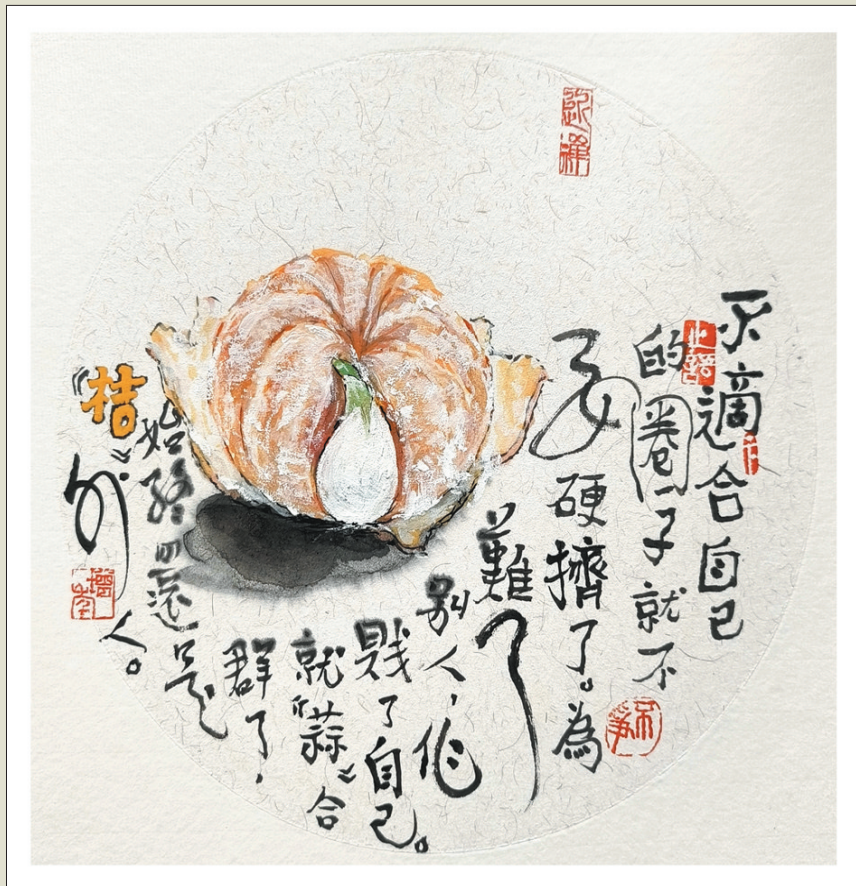 不適合自己
的圈子就不
要硬擠了。為
難了
別人，作
賤了自己。
就“蒜”合
群了，
始終還是
“桔”外人。
止語
不爭